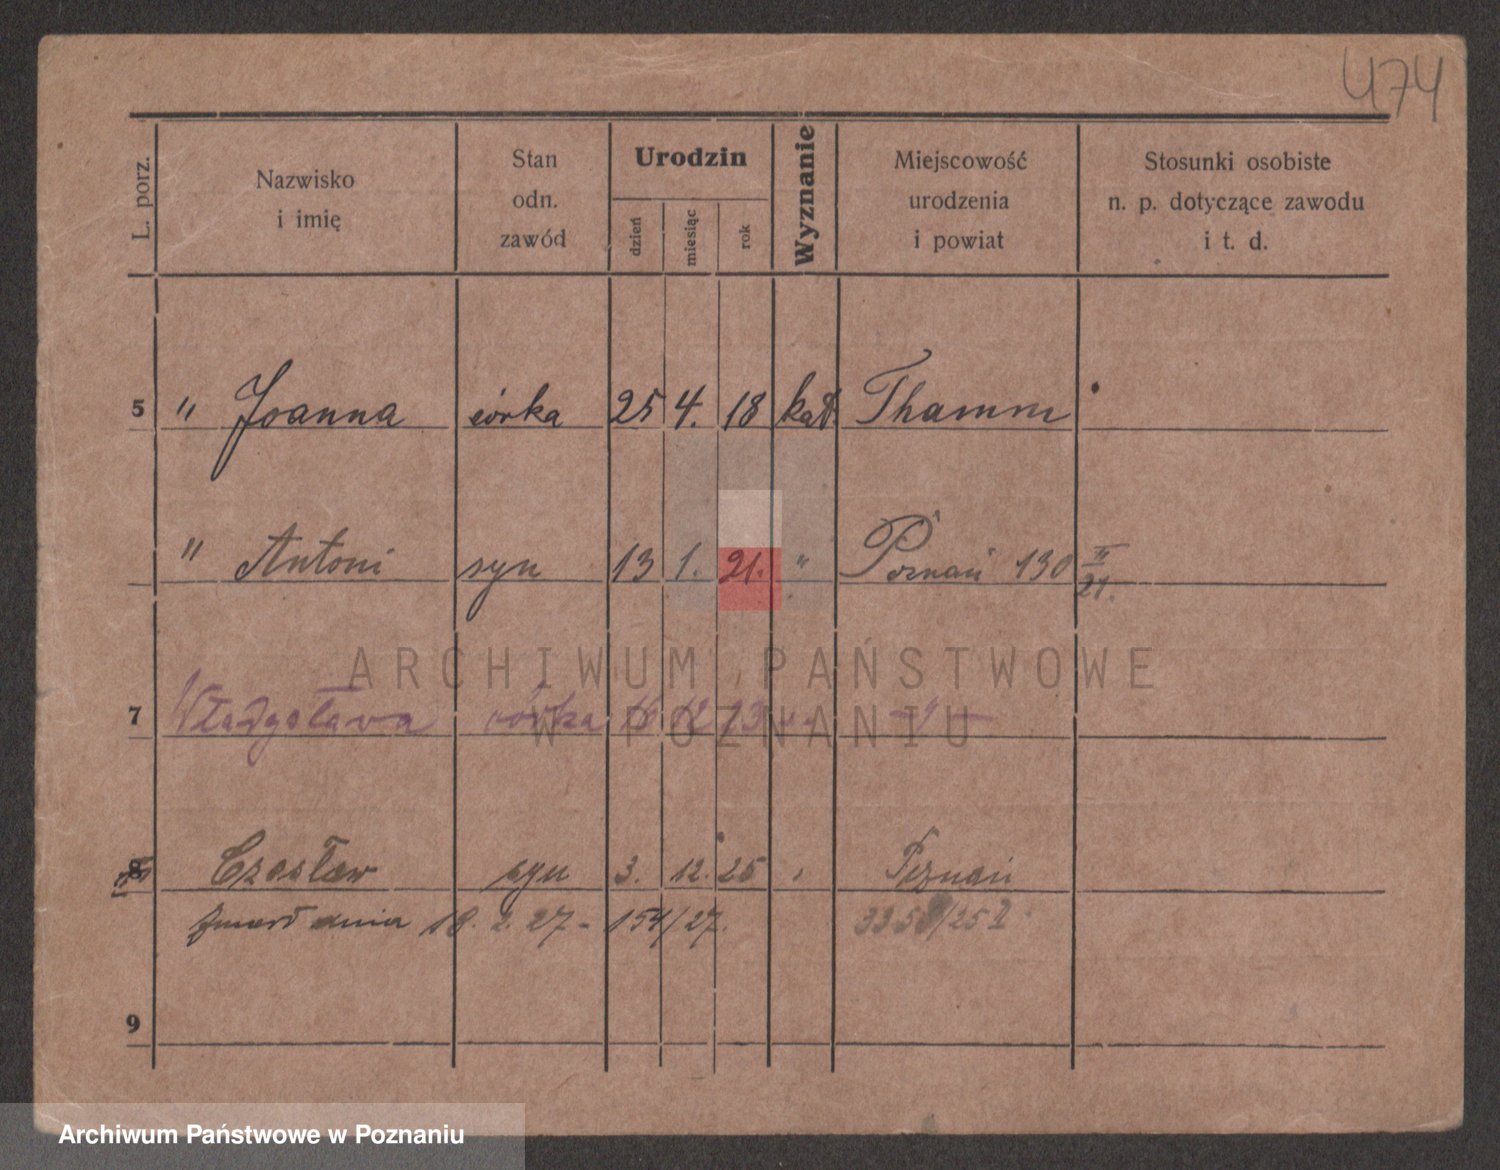 474
L. porz.
Nazwisko
i imię
Stan
odn.
zawód
Urodzin
dzień
miesiąc
rok
Wyznanie
Miejscowość
urodzenia
i powiat
Stosunki osobiste
n. p. dotyczące zawodu
i t. d.
5 " Joanna córka 25 4. 18 kat. Thamm
" Antoni syn 13 1. 21. " Poznań 130 II
21.
ARCHIWUM PAŃSTWOWE
7 Władysława córka 12 23 " - " -
W POZNANIU
8 Czesław syn 3. 12. 25 " Poznań
Zmarł dnia 18. 2. 27 - 154/27. /25
9
Archiwum Państwowe w Poznaniu